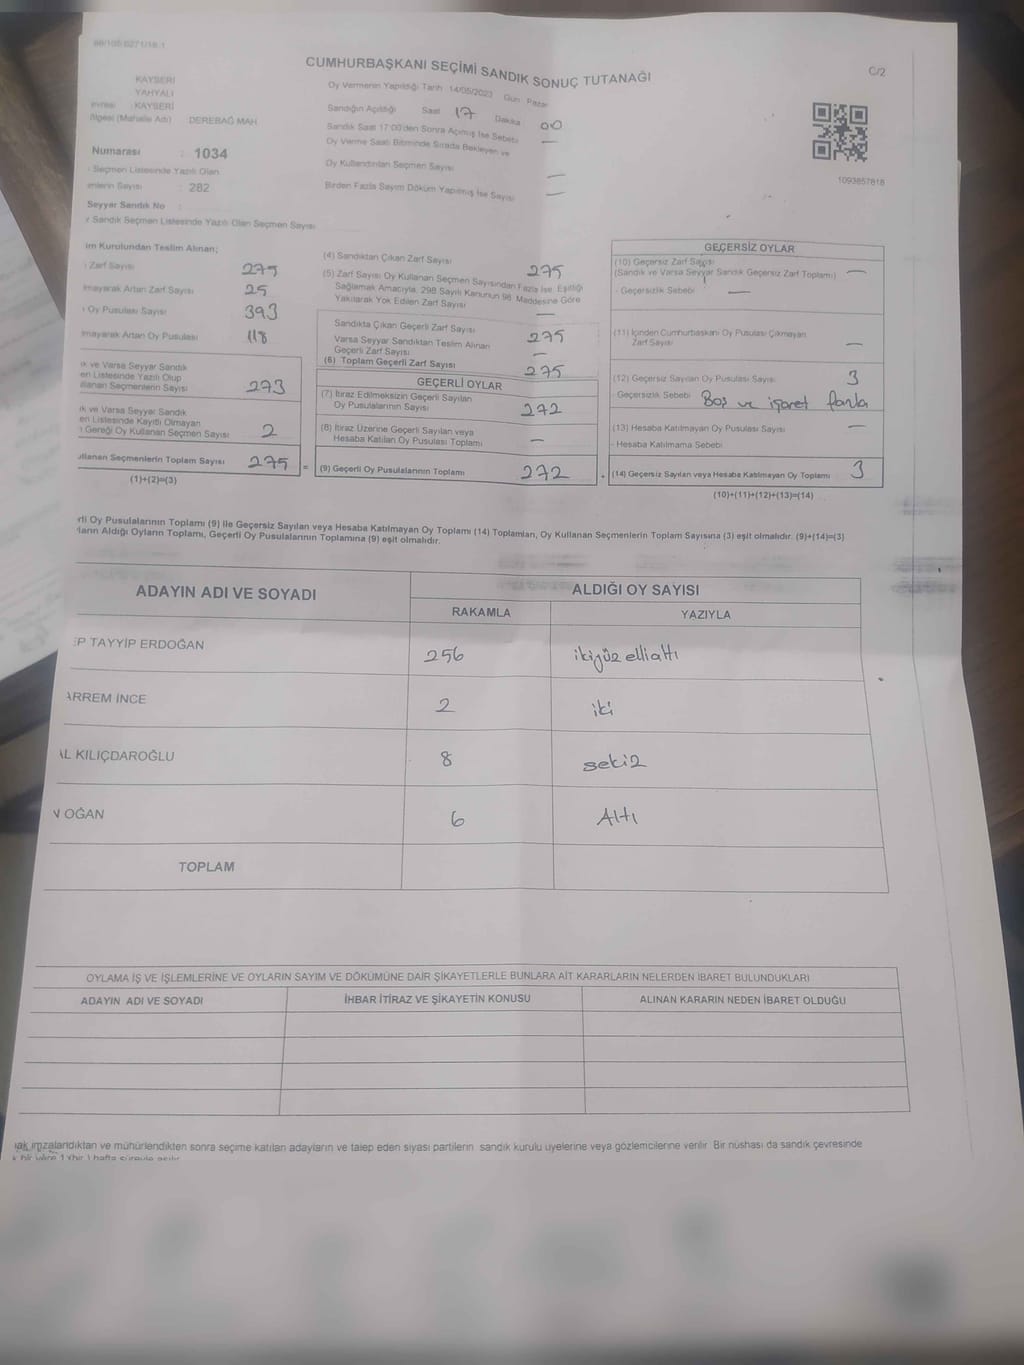 CUMHURBAŞKANI SEÇİMİ SANDIK SONUÇ TUTANAĞI
C/2
KAYSERİ
YAHYALI
KAYSERİ
DEREBAĞ MAH.
Numarası : 1034
Seçmen Listesinde Yazılı Olan
Sayısı : 282
Seyyar Sandık No :
Sandık Seçmen Listesinde Yazılı Olan Seçmen Sayısı
Oy Vermenin Yapıldığı Tarih 14/05/2023 Gün Pazar
Sandığın Açıldığı Saat 17 Dakika 00
Sandık Saat 17:00'den Sonra Açılmış İse Sebebi —
Oy Verme Saati Bitiminde Sırada Bekleyen ve
Oy Kullandırılan Seçmen Sayısı —
Birden Fazla Sayım Döküm Yapılmış İse Sayısı —
1093857818
Kurulundan Teslim Alınan;
Zarf Sayısı 275
Artan Zarf Sayısı 25
Oy Pusulası Sayısı 393
Artan Oy Pusulası 118
ve Varsa Seyyar Sandık
Listesinde Yazılı Olup
Seçmenlerin Sayısı 273
ve Varsa Seyyar Sandık
Listesinde Kayıtlı Olmayan
Gereği Oy Kullanan Seçmen Sayısı 2
Seçmenlerin Toplam Sayısı 275 =
(1)+(2)=(3)
(4) Sandıktan Çıkan Zarf Sayısı 275
(5) Zarf Sayısı Oy Kullanan Seçmen Sayısından Fazla İse, Eşitliği
Sağlamak Amacıyla, 298 Sayılı Kanunun 98. Maddesine Göre
Yakılarak Yok Edilen Zarf Sayısı —
Sandıkta Çıkan Geçerli Zarf Sayısı 275
Varsa Seyyar Sandıktan Teslim Alınan
Geçerli Zarf Sayısı —
(6) Toplam Geçerli Zarf Sayısı 275
GEÇERLİ OYLAR
(7) İtiraz Edilmeksizin Geçerli Sayılan
Oy Pusulalarının Sayısı 272
(8) İtiraz Üzerine Geçerli Sayılan veya
Hesaba Katılan Oy Pusulası Toplamı —
(9) Geçerli Oy Pusulalarının Toplamı 272
GEÇERSİZ OYLAR
(10) Geçersiz Zarf Sayısı
(Sandık ve Varsa Seyyar Sandık Geçersiz Zarf Toplamı) —
- Geçersizlik Sebebi —
(11) İçinden Cumhurbaşkanı Oy Pusulası Çıkmayan
Zarf Sayısı —
(12) Geçersiz Sayılan Oy Pusulası Sayısı 3
- Geçersizlik Sebebi Boş ve işaret fazla
(13) Hesaba Katılmayan Oy Pusulası Sayısı —
- Hesaba Katılmama Sebebi
+ (14) Geçersiz Sayılan veya Hesaba Katılmayan Oy Toplamı 3
(10)+(11)+(12)+(13)=(14)
Oy Pusulalarının Toplamı (9) ile Geçersiz Sayılan veya Hesaba Katılmayan Oy Toplamı (14) Toplamları, Oy Kullanan Seçmenlerin Toplam Sayısına (3) eşit olmalıdır. (9)+(14)=(3)
Aldığı Oyların Toplamı, Geçerli Oy Pusulalarının Toplamına (9) eşit olmalıdır.
ADAYIN ADI VE SOYADI ALDIĞI OY SAYISI
RAKAMLA YAZIYLA
EP TAYYİP ERDOĞAN 256 ikiyüz elli altı
ARREM İNCE 2 iki
AL KILIÇDAROĞLU 8 sekiz
N OĞAN 6 Altı
TOPLAM
OYLAMA İŞ VE İŞLEMLERİNE VE OYLARIN SAYIM VE DÖKÜMÜNE DAİR ŞİKAYETLERLE BUNLARA AİT KARARLARIN NELERDEN İBARET BULUNDUKLARI
ADAYIN ADI VE SOYADI İHBAR İTİRAZ VE ŞİKAYETİN KONUSU ALINAN KARARIN NEDEN İBARET OLDUĞU
imzalandıktan ve mühürlendikten sonra seçime katılan adayların ve talep eden siyasi partilerin sandık kurulu üyelerine veya gözlemcilerine verilir. Bir nüshası da sandık çevresinde